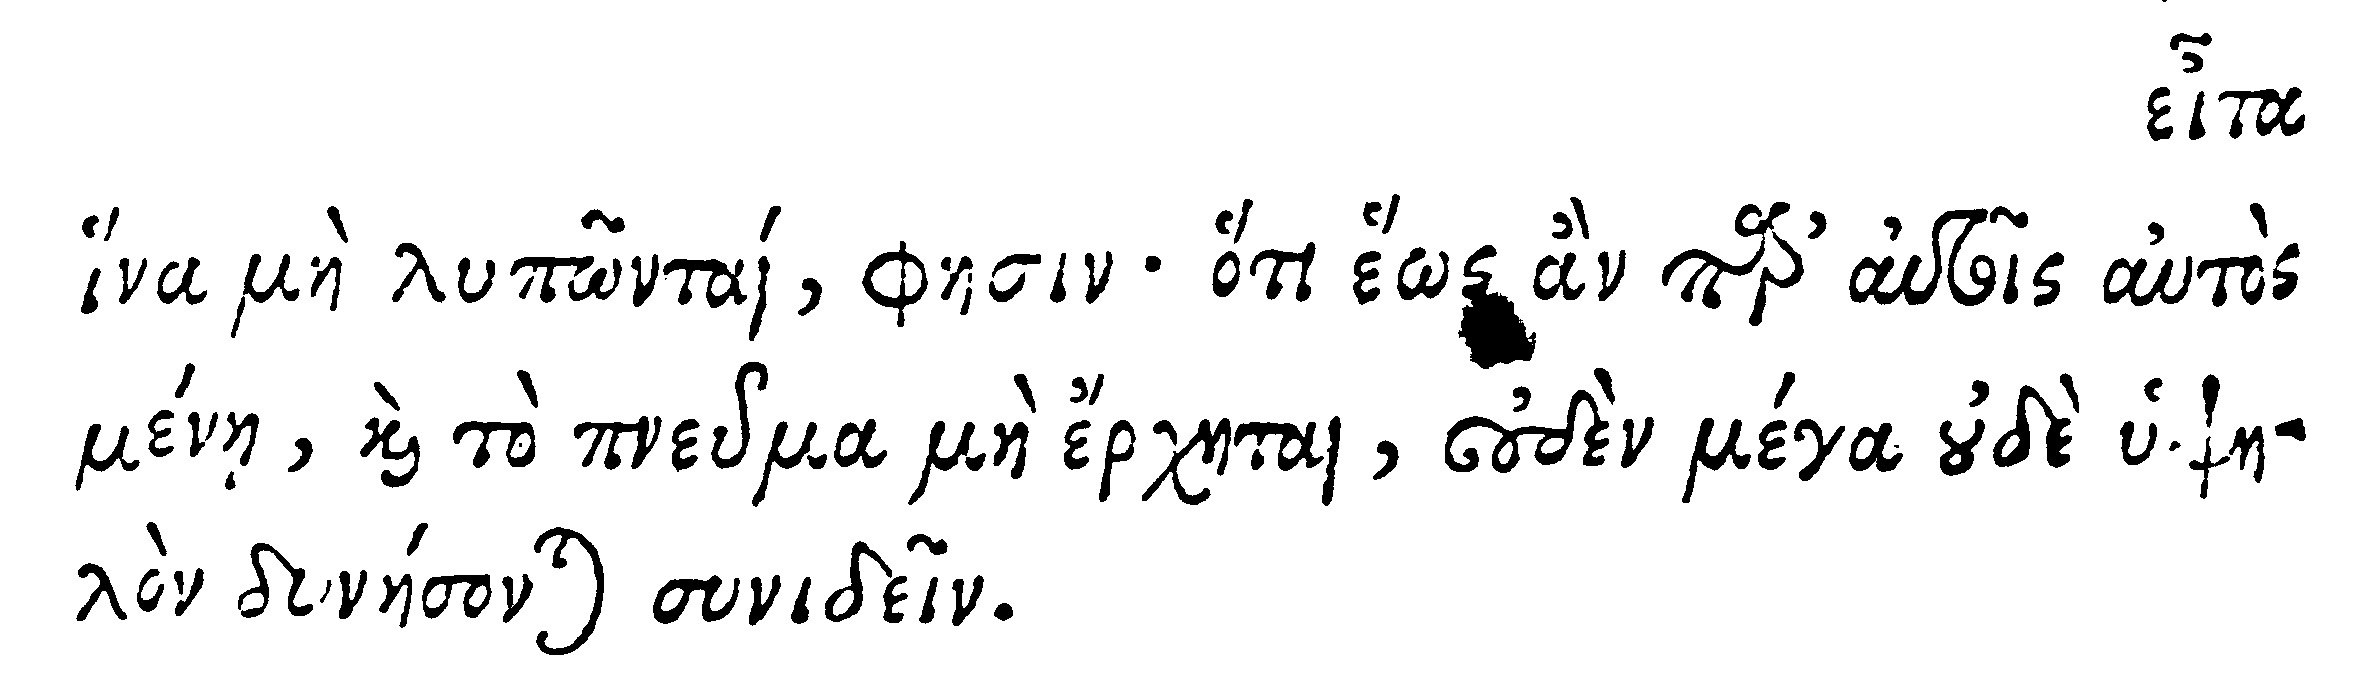 εἶτα
ἵνα μὴ λυπῶνται, φησιν· ὅτι ἕως ἂν παρ’ αὐτοῖς αὐτὸς
μένῃ, καὶ τὸ πνεῦμα μὴ ἔρχηται, οὐδὲν μέγα οὐδὲ ὑψη-
λὸν δυνήσονται συνιδεῖν.